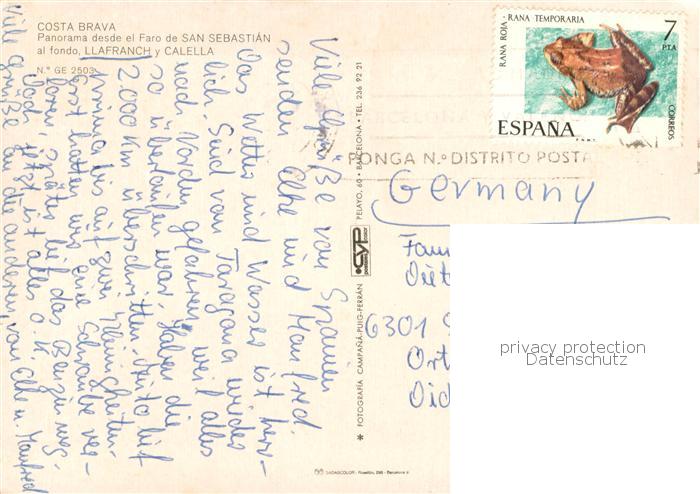 COSTA BRAVA
Panorama desde el Faro de SAN SEBASTIÁN
al fondo, LLAFRANCH y CALELLA
N.º GE 2503
Viele Grüße von Spanien
senden Elke und Manfred.
Das Wetter und Wasser ist herr-
lich. Sind von Taragona wieder
nach Norden gefahren, weil alles
so überlaufen war. Haben die
2.000 Km überschritten. Auto lief
prima, bis auf zwei Kleinigkeiten.
Erst hatten wir eine Schraube ver-
loren, später lief das Benzin weg.
Doch jetzt ist alles o.k.
Viele Grüße an die anderen, von Elke u. Manfred
* FOTOGRAFÍA CAMPAÑÁ-PUIG-FERRÁN
CYP
PELAYO, 60 • BARCELONA • TEL. 236 92 21
SADAGCOLOR - Rosellón, 298 - Barcelona
RANA ROJA - RANA TEMPORARIA
7
PTA
CORREOS
ESPAÑA
BARCELONA
PONGA N.º DISTRITO POSTA
Germany
Fam
Diet
6301
Ort
Oid
privacy protection
Datenschutz